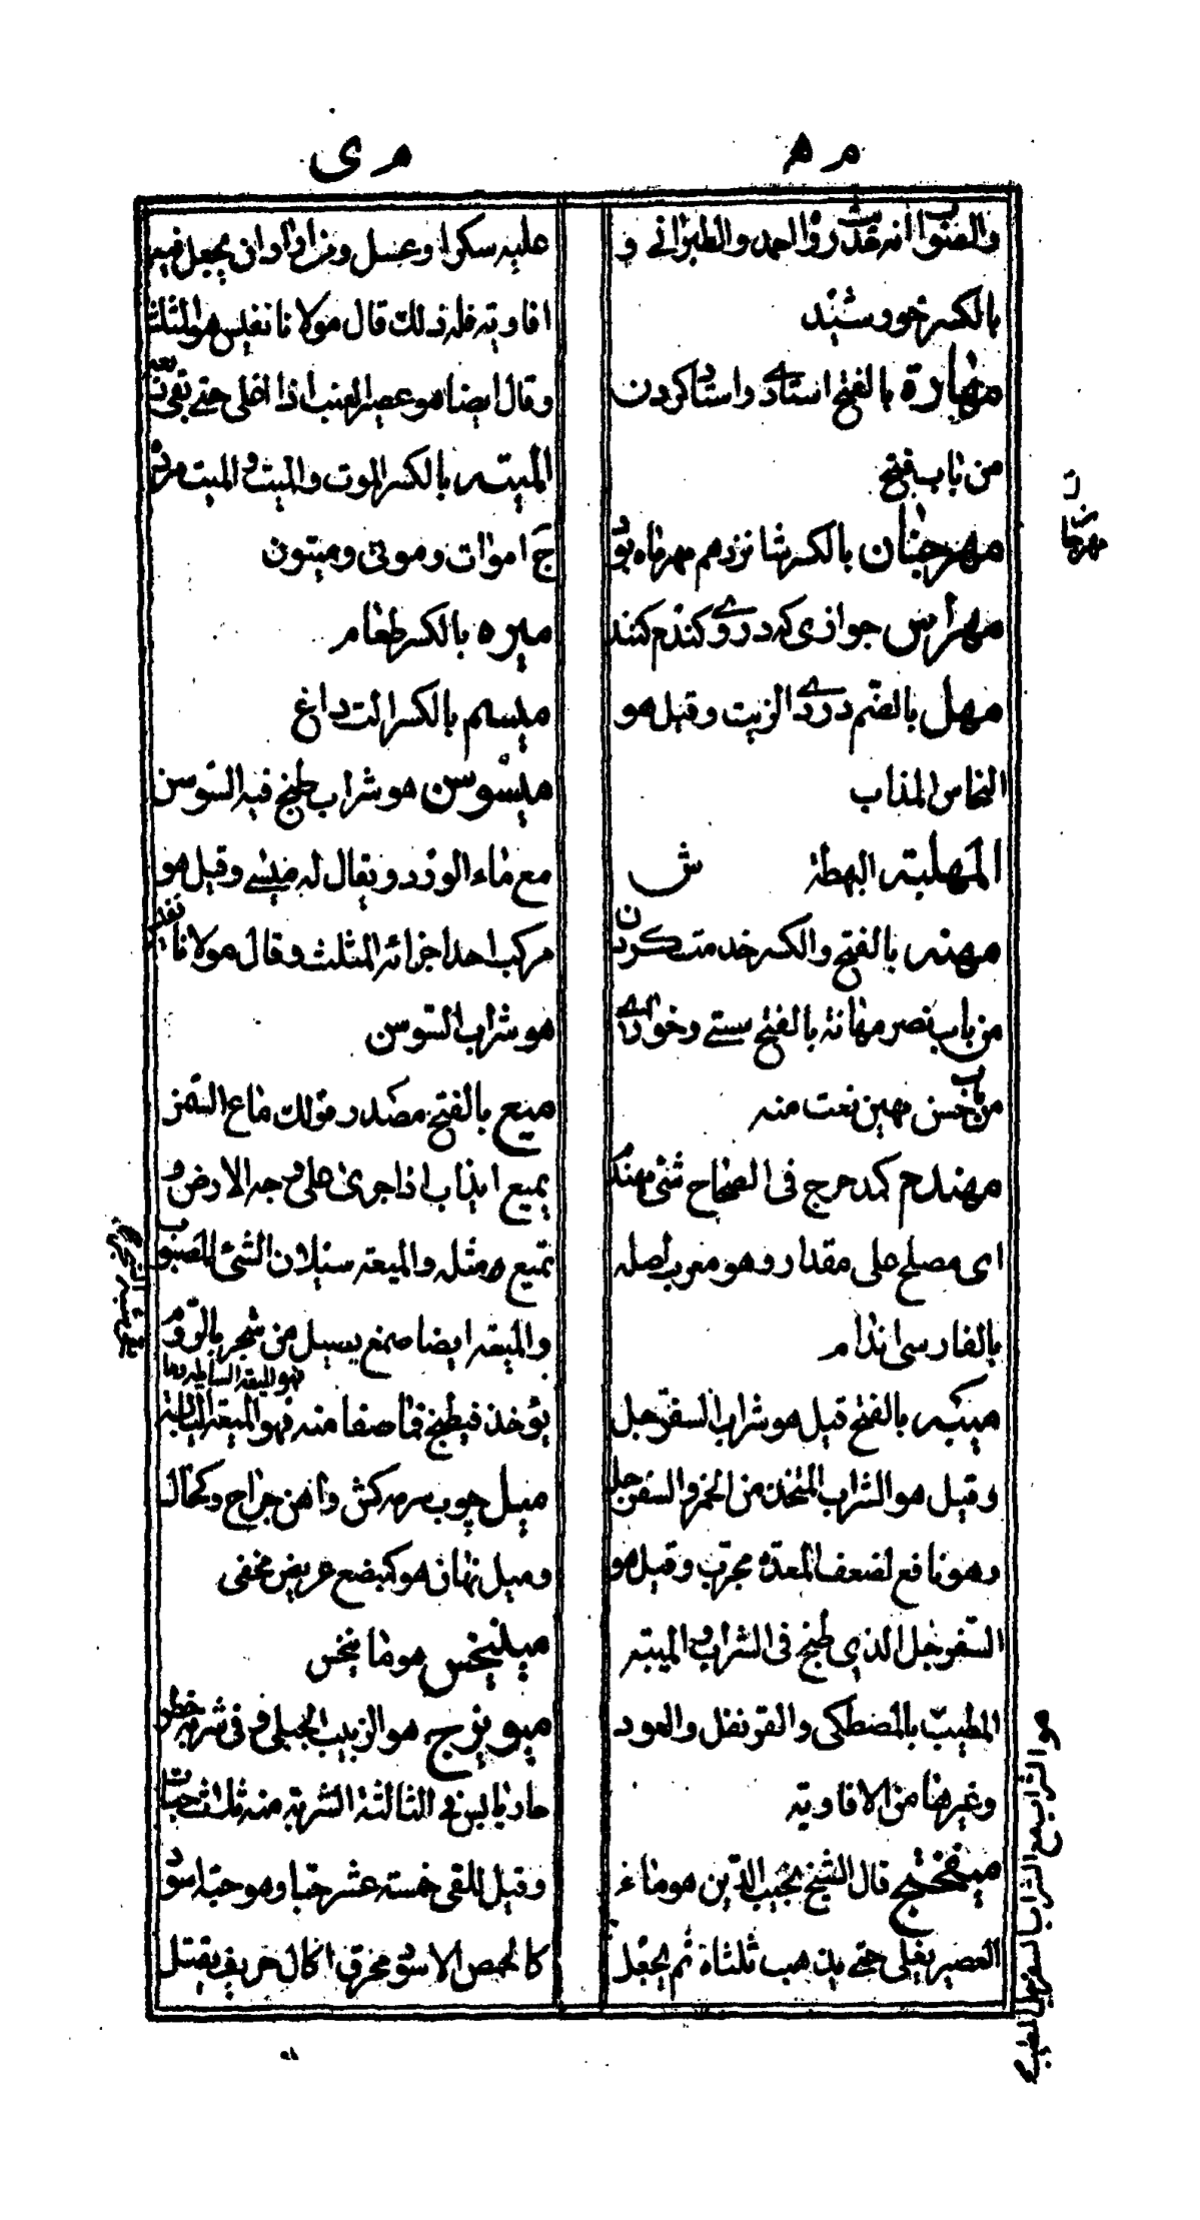 م ه
والصواب انه قدرواه احمد والطبرانی و
بالکسر خورشید
مهارة بالفتح استادی واستاد کردن
من باب فتح
مهرجان بالکسر شانزدهم مهرماه بود
مهراس جوازی که دروی کندم کنند
مهل بالضم دردی الزیت وقیل هو
النحاس المذاب
المهلبیه البهطة ش
مهنه بالفتح والکسر خدمت کردن
من باب نصر مهانة بالفتح سستی وخواری
من باب حسن مهین نعت منه
مهندم کمدحرج فی الصحاح شئ مهندم
ای مصلح علی مقدار وهو معرب اصله
بالفارسی اندام
میبه بالفتح قیل هو شراب السفرجل
وقیل هو الشراب المتخذ من الخمر والسفرجل
وهو نافع لضعف المعده مجرب وقیل هو
السفرجل الذی طبخ فی الشراب و المیبه
المطیب بالمصطکی والقرنفل والعود
وغیرها من الافاویه
میفختج قال الشیخ نجیب الدین هو ماء
العصیر یغلی حتی یذهب ثلثاه ثم یجعل
مهرجانات
هو الشراب مع الشراب السفرجل المطیب
م ی
علیه سکرا وعسل ومن اراد ان یجعل فیه
افاویه فله ذلک قال مولانا نفیس هو المثلث
وقال ایضا هو عصیر العنب اذا اغلی حتی بقی ربعه
المیته بالکسر الموت والمیت و المیت مرده
ج اموات وموتی ومیتون
میره بالکسر طعام
میسم بالکسر الت داغ
میسوسن هو شراب طبخ فیه السوسن
مع ماء الورد ویقال له میسی وقیل هو
مرکب احد اجزائه المثلث وقال مولانا نفیس
هو شراب السوسن
میع بالفتح مصدر قولک ماع السمن
یمیع ای ذاب اذا جری علی وجه الارض و
تمیع مثله والمیعه سیلان الشئ المصبوب
والمیعه ایضا صمغ یسیل من شجر بالروم
فهو المیعه السایله وما
یؤخذ فیطبخ فما صفا منه فهو المیعه السایلة
میل چوب سرمه کش واهن جراح وکحال
ومیل نهان هو کمبضع عریض مخفی
میلنیخس هو مانیخس
میویزج هو الزبیب الجبلی و فی شربه خطر
حار یابس فی الثالثة الشربة منه ثلث حبات
وقیل للقی خمسة عشر حبا وهو حبه اسود
کالحمص الاسود محرق اکال حریف یقتل